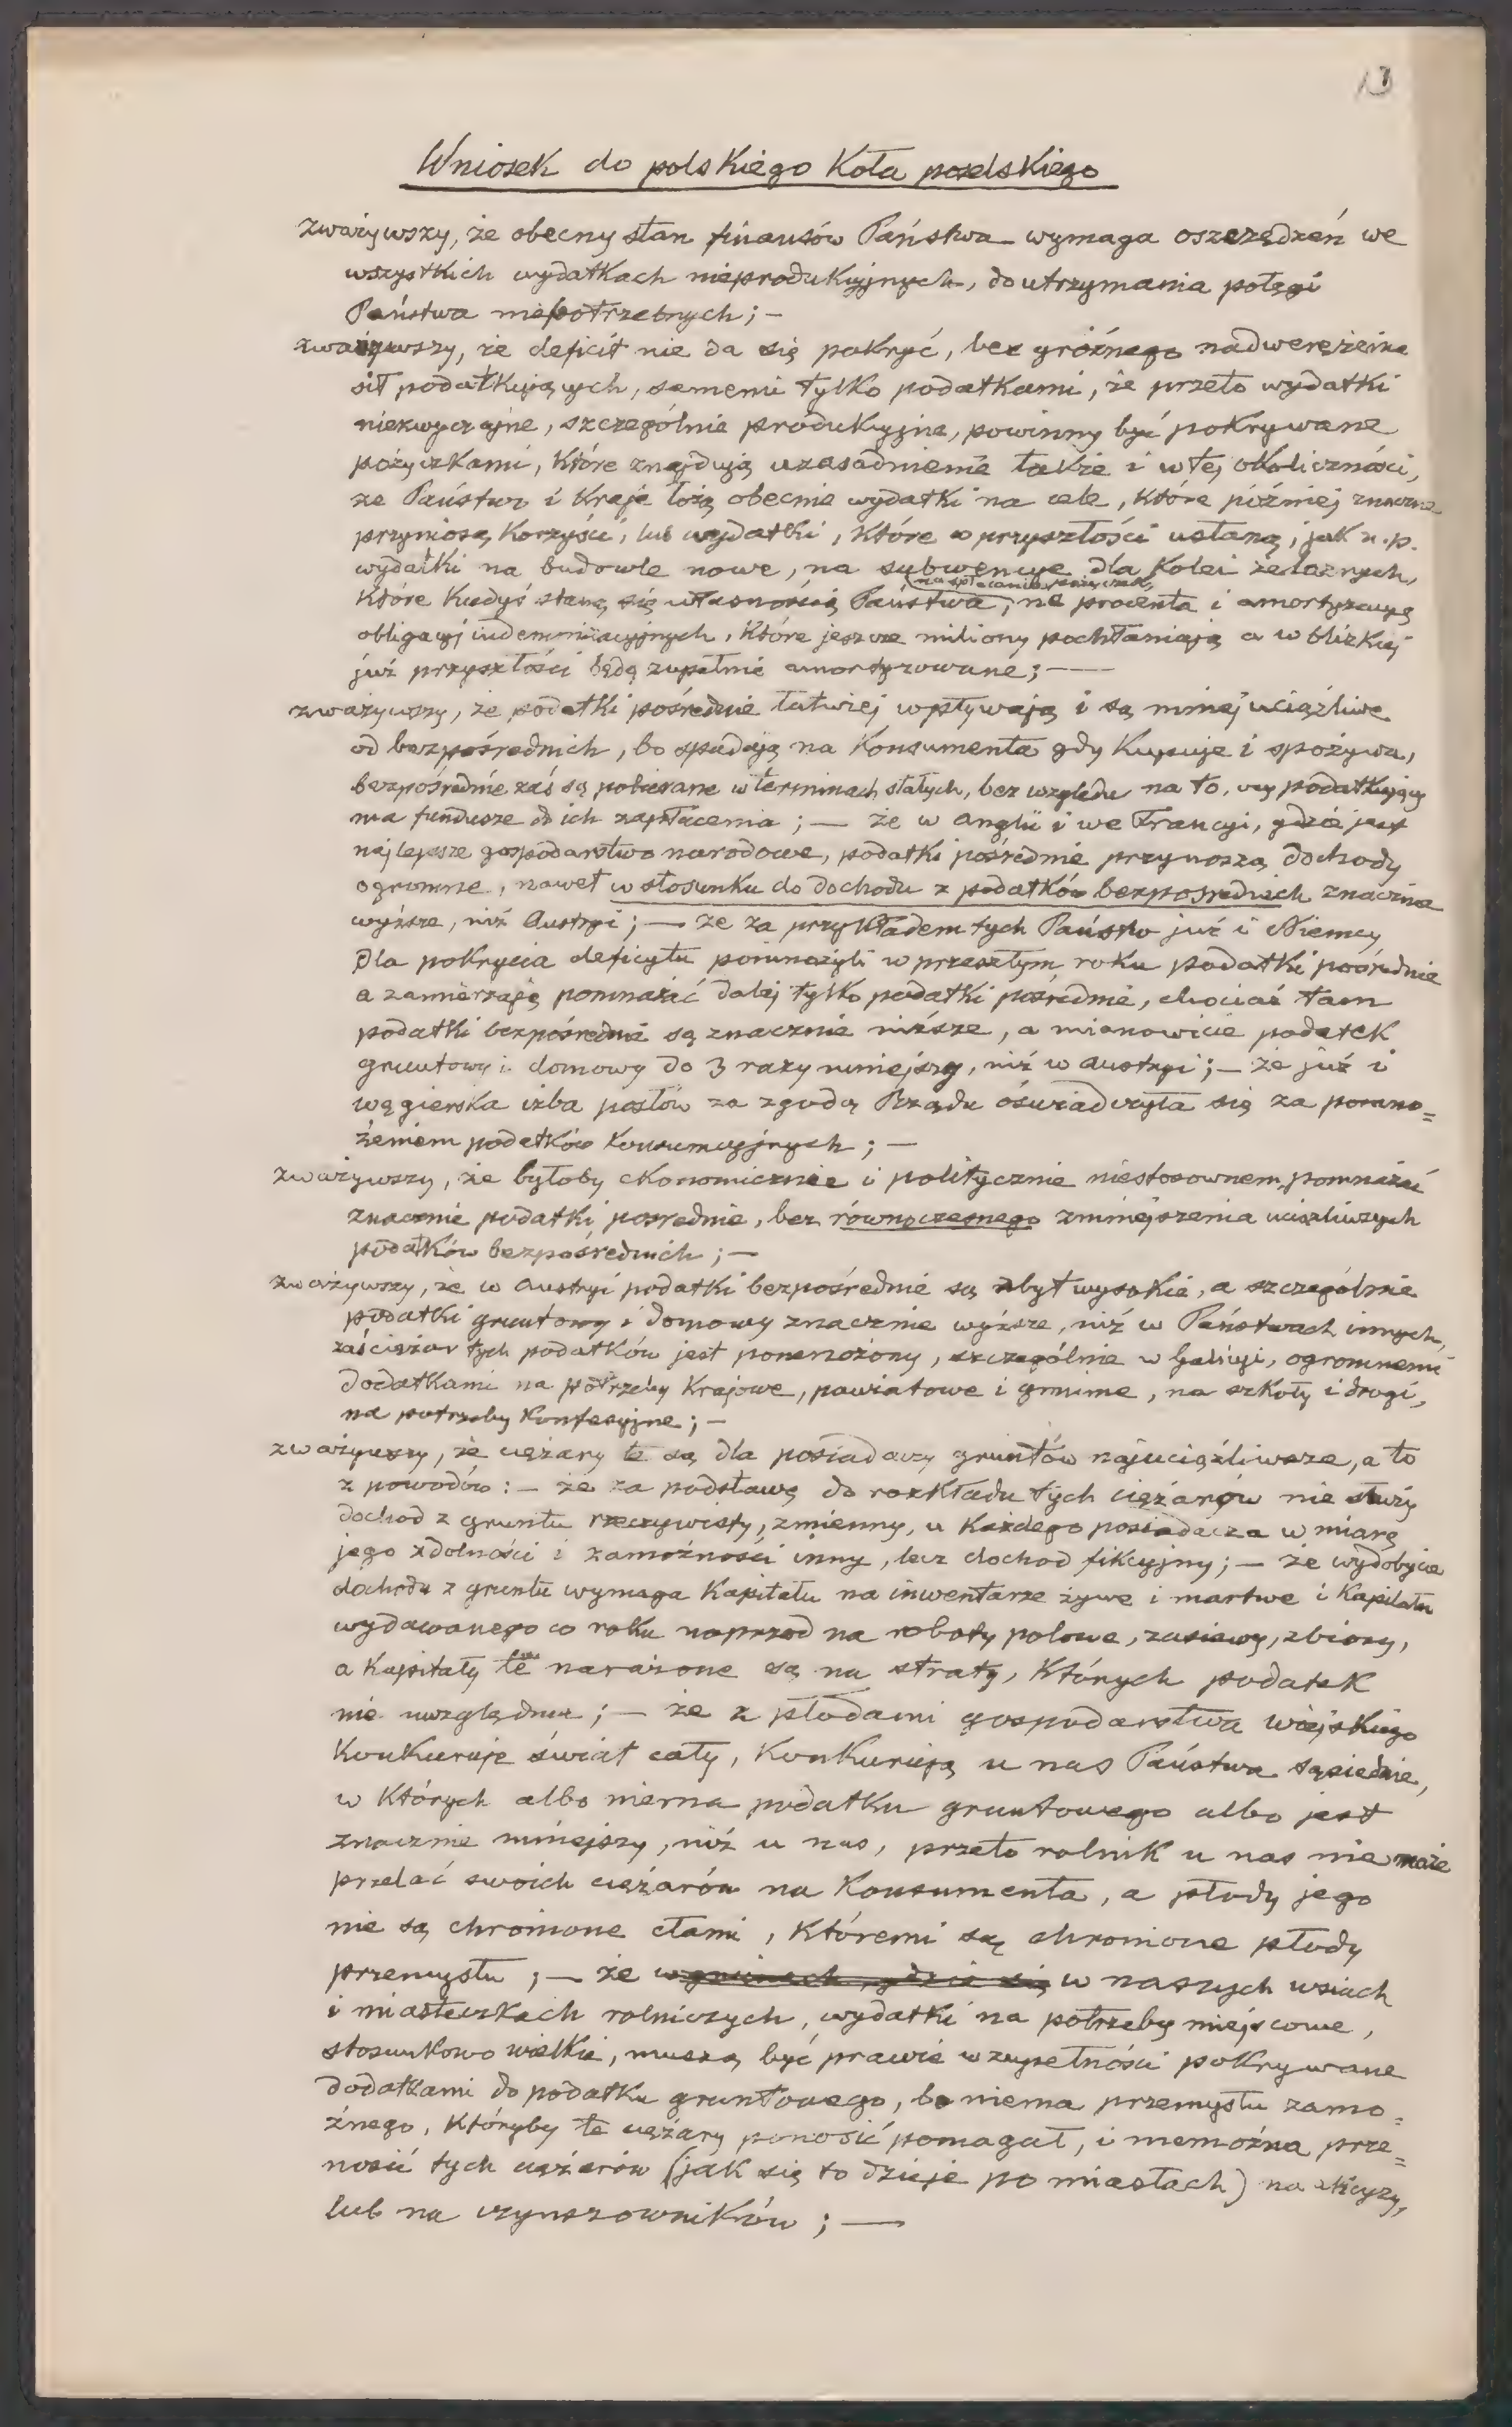 13
Wniosek do polskiego Koła poselskiego
zważywszy, że obecny stan finansów Państwa wymaga oszczędzeń we
wszystkich wydatkach nieprodukcyjnych, do utrzymania potęgi
Państwa niepotrzebnych; —
zważywszy, że deficit nie da się pokryć, bez groźnego nadwerężenia
sił podatkujących, samemi tylko podatkami, że przeto wydatki
niezwyczajne, szczególnie produkcyjne, powinny być pokrywane
pożyczkami, które znajdują uzasadnienie także i w tej okoliczności,
że Państwo i Kraje łożą obecnie wydatki na cele, które później znaczne
przyniosą korzyści, lub wydatki, które w przyszłości ustaną, jak n.p.
wydatki na budowle nowe, na subwencye dla Kolei żelaznych,
na spłacanie pożyczek,
które kiedyś staną się własnością Państwa, na procenta i amortyzacyą
obligacyj indemnizacyjnych, które jeszcze miliony pochłaniają a w blizkiej
już przyszłości będą zupełnie amortyzowane; —
zważywszy, że podatki pośrednie łatwiej wpływają i są mniej uciążliwe
od bezpośrednich, bo spadają na Konsumenta gdy kupuje i spożywa,
bezpośrednie zaś są pobierane w terminach stałych, bez względu na to, czy podatkujący
ma fundusze do ich zapłacenia; — że w Anglii i we Francyi, gdzie jest
najlepsze gospodarstwo narodowe, podatki pośrednie przynoszą dochody
ogromne, nawet w stosunku do dochodu z podatków bezpośrednich znacznie
wyższe, niż Austryi; — że za przykładem tych Państw już i Niemcy
dla pokrycia deficytu pomnożyli w przeszłym roku podatki pośrednie
a zamierzają pomnażać dalej tylko podatki pośrednie, chociaż tam
podatki bezpośrednie są znacznie niższe, a mianowicie podatek
gruntowy i domowy do 3 razy mniejszy, niż w Austryi; — że już i
węgierska izba posłów za zgodą Rządu oświadczyła się za pomno=
żeniem podatków konsumcyjnych; —
zważywszy, że byłoby ekonomicznie i politycznie niestosownem, pomnażać
znacznie podatki pośrednie, bez równoczesnego zmniejszenia uciążliwszych
podatków bezpośrednich; —
zważywszy, że w Austryi podatki bezpośrednie są zbyt wysokie, a szczególnie
podatki gruntowy i domowy znacznie wyższe, niż w Państwach innych,
zaś ciężar tych podatków jest pomnożony, szczególnie w Galicyi, ogromnemi
dodatkami na potrzeby Krajowe, powiatowe i gminne, na szkoły i drogi,
na potrzeby Konfesyjne; —
zważywszy, że ciężary te są dla posiadaczy gruntów najuciążliwsze, a to
z powodów: — że za podstawę do rozkładu tych ciężarów nie służy
dochod z gruntu rzeczywisty, zmienny, u każdego posiadacza w miarę
jego zdolności i zamożności inny, lecz dochod fikcyjny; — że wydobycie
dochodu z gruntu wymaga Kapitału na inwentarze żywe i martwe i Kapitału
wydawanego co roku naprzod na roboty polowe, zasiewy, zbiory,
a Kapitały te narażone są na straty, których podatek
nie uwzględnia; — że z płodami gospodarstwa wiejskiego
Konkuruje świat cały, Konkurują u nas Państwa sąsiednie,
w których albo niema podatku gruntowego albo jest
znacznie mniejszy, niż u nas, przeto rolnik u nas nie może
przelać swoich ciężarów na Konsumenta, a płody jego
nie są chronione cłami, któremi są chronione płody
przemysłu; — że w gminach, gdzie się w naszych wsiach
i miasteczkach rolniczych, wydatki na potrzeby miejscowe,
stosunkowo wielkie, muszą być prawie w zupełności pokrywane
dodatkami do podatku gruntowego, bo niema przemysłu zamo=
żnego, któryby te ciężary ponosić pomagał, i niemożna prze=
nosić tych ciężarów (jak się to dzieje po miastach) na
lub na czynszowników; —